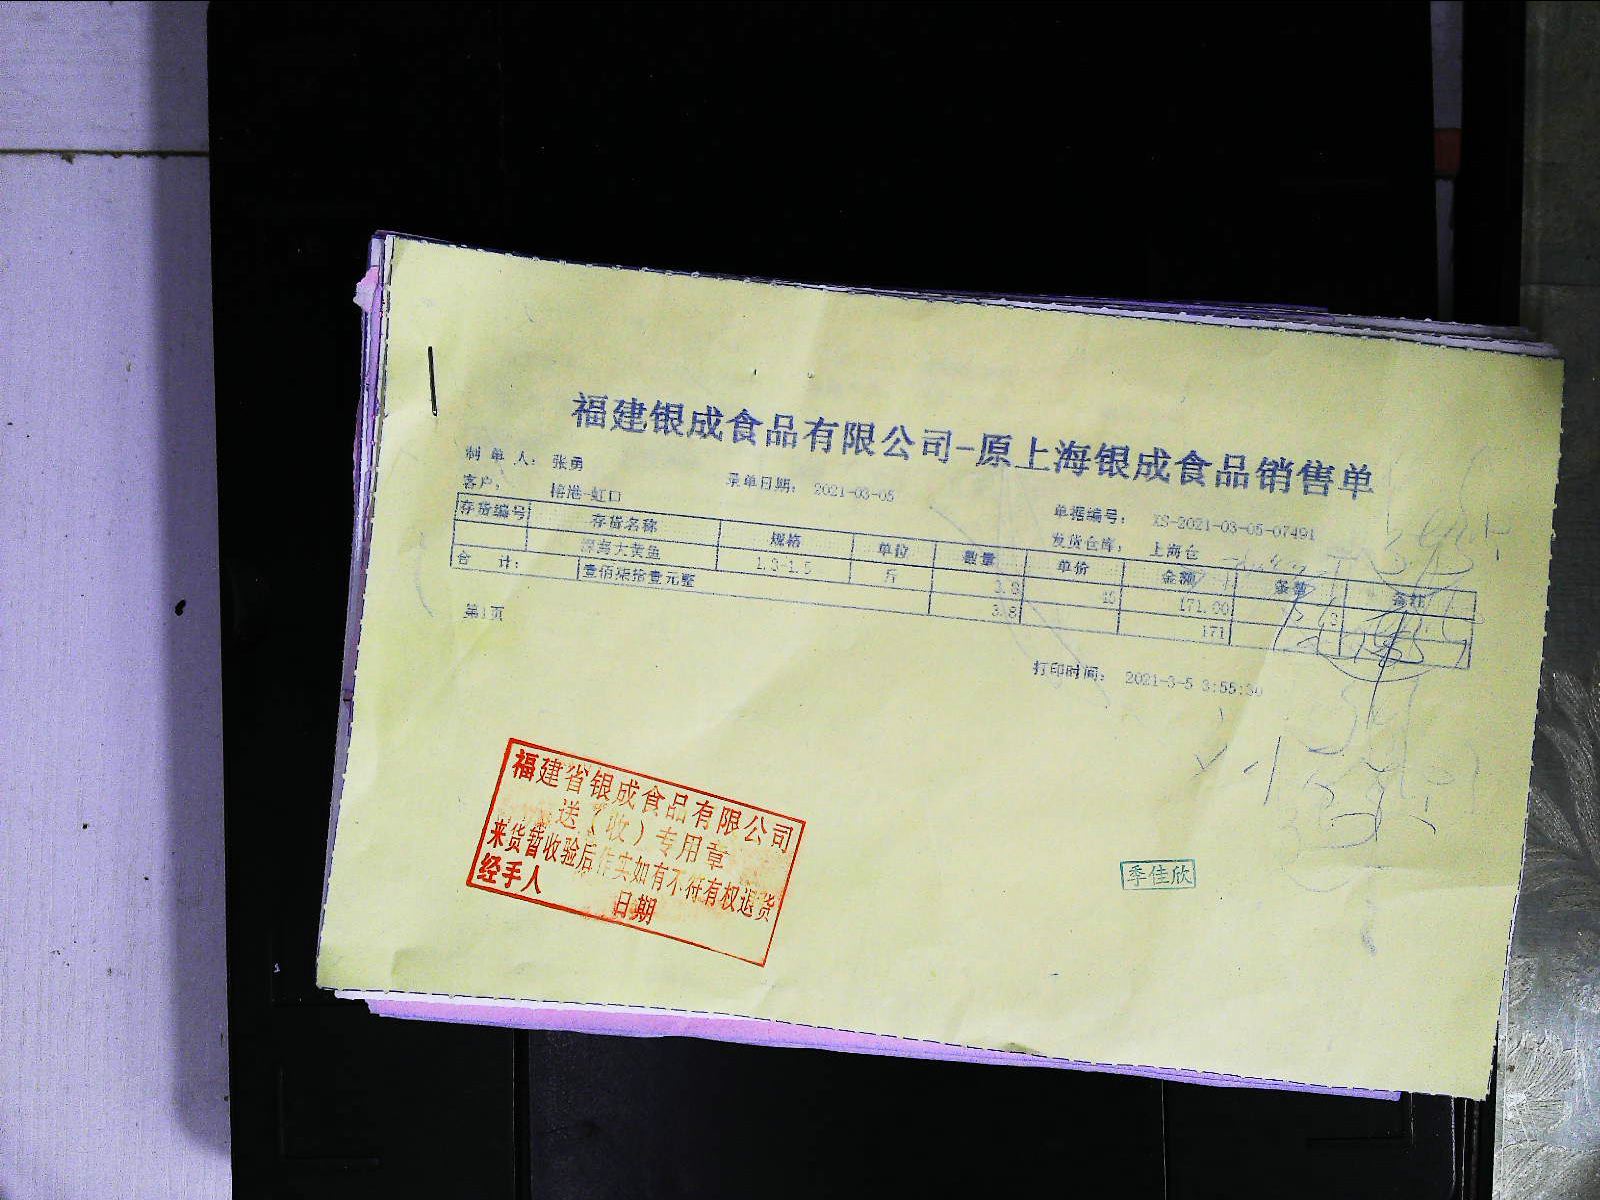 福建银成食品有限公司-原上海银成食品销售单
制 单 人： 张勇 录单日期： 2021-03-05 单据编号： XS-2021-03-05-07491
客户： 榕港-虹口 发货仓库： 上海仓
存货编号 存货名称 规格 单位 数量 单价 金额 条码 备注
深海大黄鱼 1.3-1.5 斤 3.8 45 171.00
合 计： 壹佰柒拾壹元整 3.8 171
第1页 打印时间： 2021-3-5 3:55:30
福建省银成食品有限公司
送（收）专用章
来货暂收验后作实如有不符有权退货
经手人 日期
季佳欣